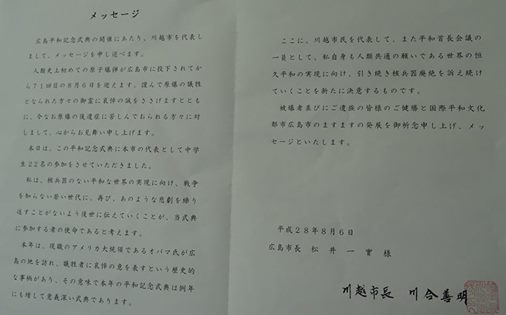 メッセージ
広島平和記念式典の開催にあたり、川越市を代表し
まして、メッセージを申し述べます。
人類史上初めての原子爆弾が広島市に投下されてか
ら71回目の8月6日を迎えます。謹んで原爆の犠牲
となられた方々の御霊に哀悼の誠をささげますととも
に、今なお原爆の後遺症に苦しんでおられる方々に対
しまして、心からお見舞い申し上げます。
本日は、この平和記念式典に本市の代表として中学
生22名の参加をさせていただきました。
私は、核兵器のない平和な世界の実現に向け、戦争
を知らない若い世代に、再び、あのような悲劇を繰り
返すことがないよう後世に伝えていくことが、当式典
に参加する者の使命であると考えます。
本年は、現職のアメリカ大統領であるオバマ氏が広
島の地を訪れ、犠牲者に哀悼の意を表すという歴史的
な事柄があり、その意味で本年の平和記念式典は例年
にも増して意義深い式典であります。
ここに、川越市民を代表して、また平和首長会議の
一員として、私自身も人類共通の願いである世界の恒
久平和の実現に向け、引き続き核兵器廃絶を訴え続け
ていくことを新たに決意するものです。
被爆者及びにご遺族の皆様のご健勝と国際平和文化
都市広島市のますますの発展を御祈念申し上げ、メッ
セージといたします。
平成28年8月6日
広島市長 松井一實 様
川越市長 川合善明